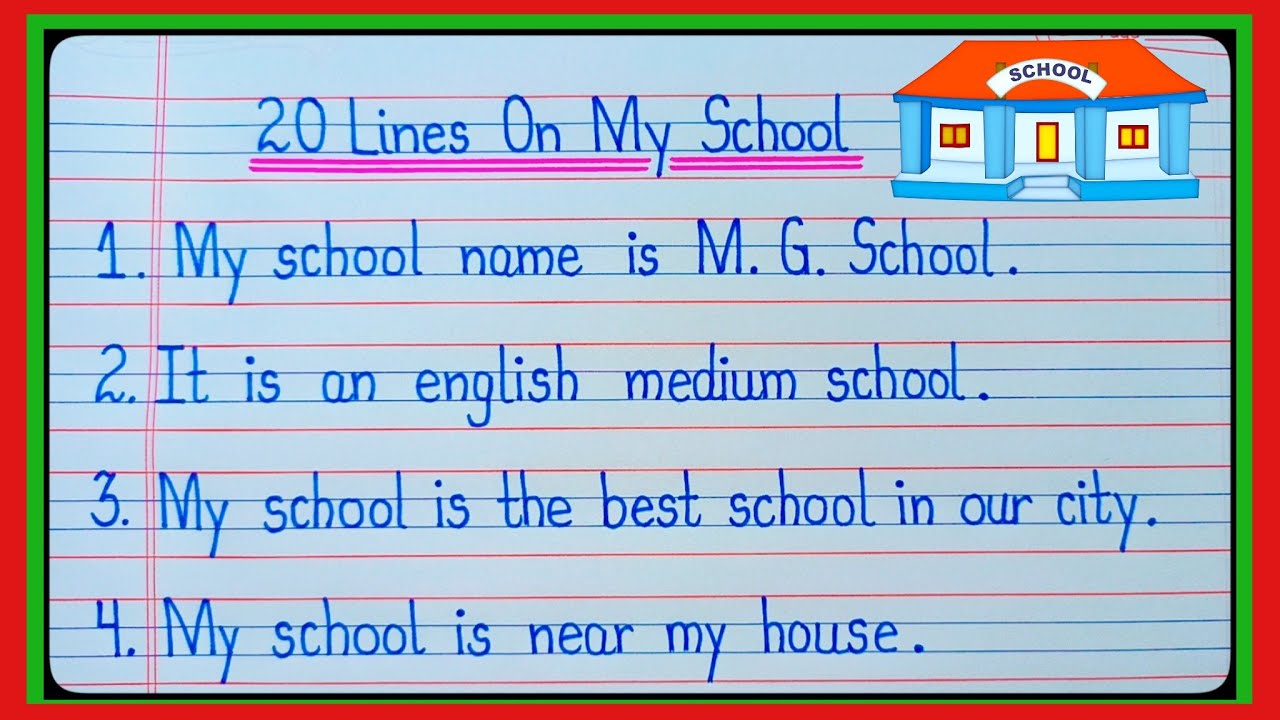 20 Lines On My School
SCHOOL
1. My school name is M. G. School.
2. It is an english medium school.
3. My school is the best school in our city.
4. My school is near my house.